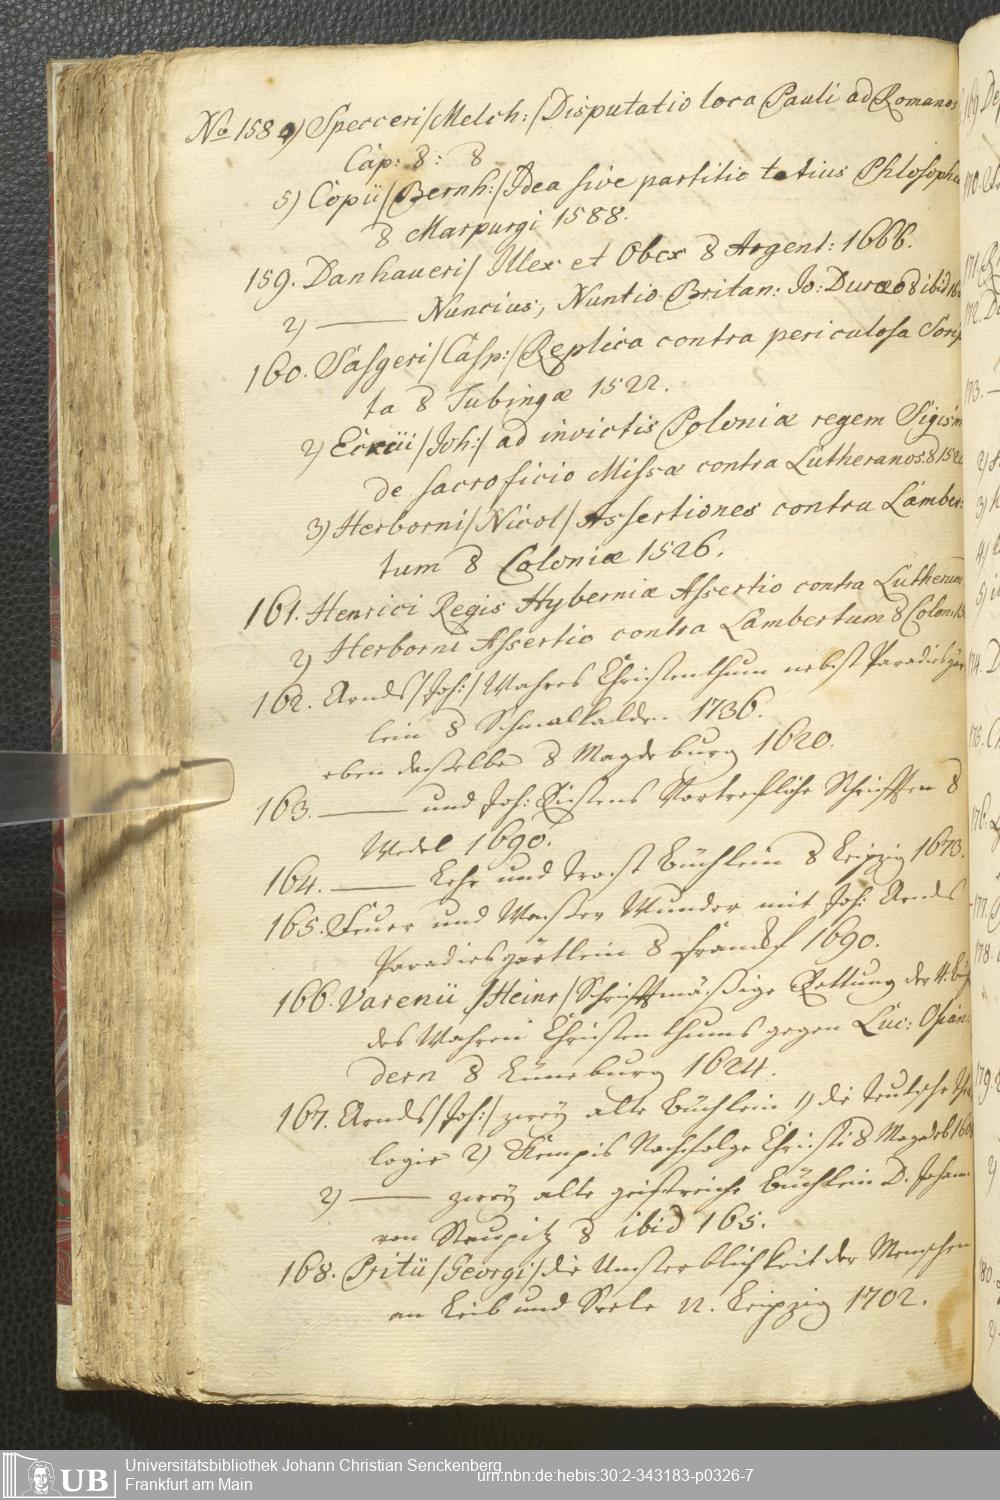 No 158 4) Specceri/Melch:/Disputatio loca Pauli ad Romanos
Cap: 8: 8
5) Copii/Bernh:/Idea sive partitio totius Phlosophi
8 Marpurgi 1588.
159. Danhaueri/ Illex et Obex 8 Argent: 1666.
2) ——— Nuncius, Nuntio Britan: Jo: Duræo 8 ibid
160. Sasgeri/Casp:/Replica contra periculosa Scrip
ta 8 Tubingæ 1522.
2) Eckii/Joh:/ ad invictis Poloniæ regem Sigism
de sacroficio Missæ contra Lutheranos. 8
3) Herborni/Nicol/Assertiones contra Lamber:
tum 8 Coloniæ 1526.
161. Henrici Regis Hyberniæ Assertio contra Lutherum
2) Herborni Assertio contra Lambertum 8 Colon:
162. Arnds/Joh:/Wahres Christenthum nebst Paradiesgär
lein 8 Schmalkalden 1736.
eben dasselbe 8 Magdeburg 1620.
163. ——— und Joh: Vortrefliche Schrifften 8
Wedel 1690.
164. ——— Lehr und Trost Büchlein 8 Leipzig 1673.
165. Feuer und Wasser Wunder mit Joh: Arnds
Paradiesgärtlein 8 Franckf 1690.
166. Varenii /Heinr/Schrifftmäßige Rettung der 4.
des Wahren Christenthums gegen Luc: Osian:
dern 8 Lüneburg 1624.
167. Arnds/Joh:/zwey alte Büchlein 1) die teutsche Theo
logie 2) Kempis Nachfolge Christi 8 Magdeb
2) ——— zwey alte geistreiche Büchlein D. Johann
von Staupitz 8 ibid 165.
168. Pritii/Georgi/die Unsterblichkeit der Menschen
an Leib und Seele 12. Leipzig 1702.
UB
Universitätsbibliothek Johann Christian Senckenberg
Frankfurt am Main
urn:nbn:de:hebis:30:2-343183-p0326-7